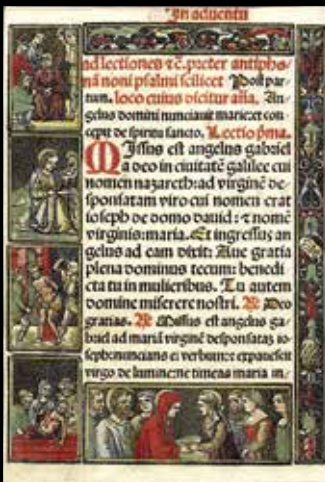 In aduentu
ad lectiones ⁊c̃. preter antipho-
nã noni psalmi scilicet Post par-
tum. loco cuius dicitur añа. An-
gelus domini nunciauit marie: et con
cepit de spiritu sancto. Lectio p̃ma.
Missus est angelus gabriel
a deo in ciuitatẽ galilee cui
nomen nazareth: ad virginẽ de-
sponsatam viro cui nomen erat
ioseph de domo dauid: ⁊ nomẽ
virginis: maria. Et ingressus an
gelus ad eam dixit: Aue gratia
plena dominus tecum: benedi
cta tu in mulieribus. Tu autem
domine miserere nostri. ℟ Deo
gratias. ℟ Missus est angelus ga-
briel ad mariã virginẽ desponsatãʒ io-
seph: nuncians ei verbum: et expauescit
virgo de lumine: ne timeas maria in-